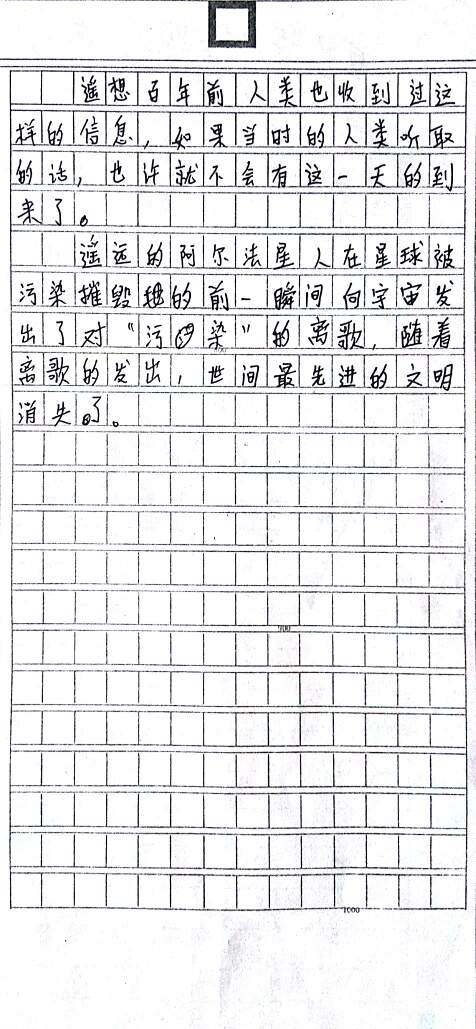 遥想百年前人类也收到过这
样的信息，如果当时的人类听取
的话，也许就不会有这一天的到
来了。
遥远的阿尔法星人在星球被
污染摧毁的前一瞬间向宇宙发
出了对“污染”的离歌，随着
离歌的发出，世间最先进的文明
消失了。
900
1000